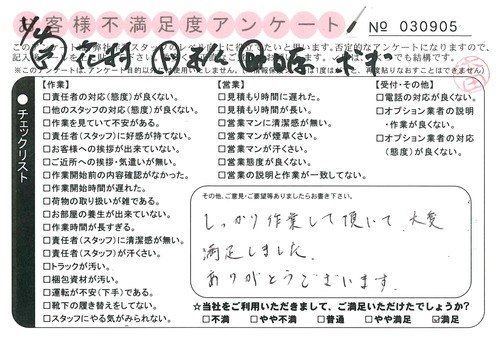 お客様不満足度アンケート
No 030905
※このアンケートは、
チェックリスト
【作業】
□責任者の対応(態度)が良くない。
□他のスタッフの対応(態度)が良くない。
□作業を見ていて不安がある。
□責任者(スタッフ)に好感が持てない。
□お客様への挨拶が出来ていない。
□ご近所への挨拶・気遣いが無い。
□作業開始前の内容確認がなかった。
□作業開始時間が遅れた。
□荷物の取り扱いが雑である。
□お部屋の養生が出来ていない。
□作業時間が長すぎる。
□責任者(スタッフ)に清潔感が無い。
□責任者(スタッフ)が汗くさい。
□トラックが汚い。
□梱包資材が汚い。
□運転が不安(下手)である。
□靴下の履き替えをしてない。
□スタッフにやる気がみられない。
【営業】
□見積もり時間に遅れた。
□見積もり時間が長い。
□営業マンに清潔感が無い。
□営業マンが煙草くさい。
□営業マンが汗くさい。
□営業態度が良くない。
□営業の説明と作業が一致してない。
【受付・その他】
□電話の対応が良くない。
□オプション業者の説明
・作業が良くない。
□オプション業者の対応
(態度)が良くない。
その他、ご意見・ご要望等ありましたらお書き下さい。
しっかり作業して頂いて、大変
満足しました。
ありがとうございます。
☆当社をご利用いただきまして、ご満足いただけたでしょうか?
□不満 □やや不満 □普通 □やや満足 ☑満足